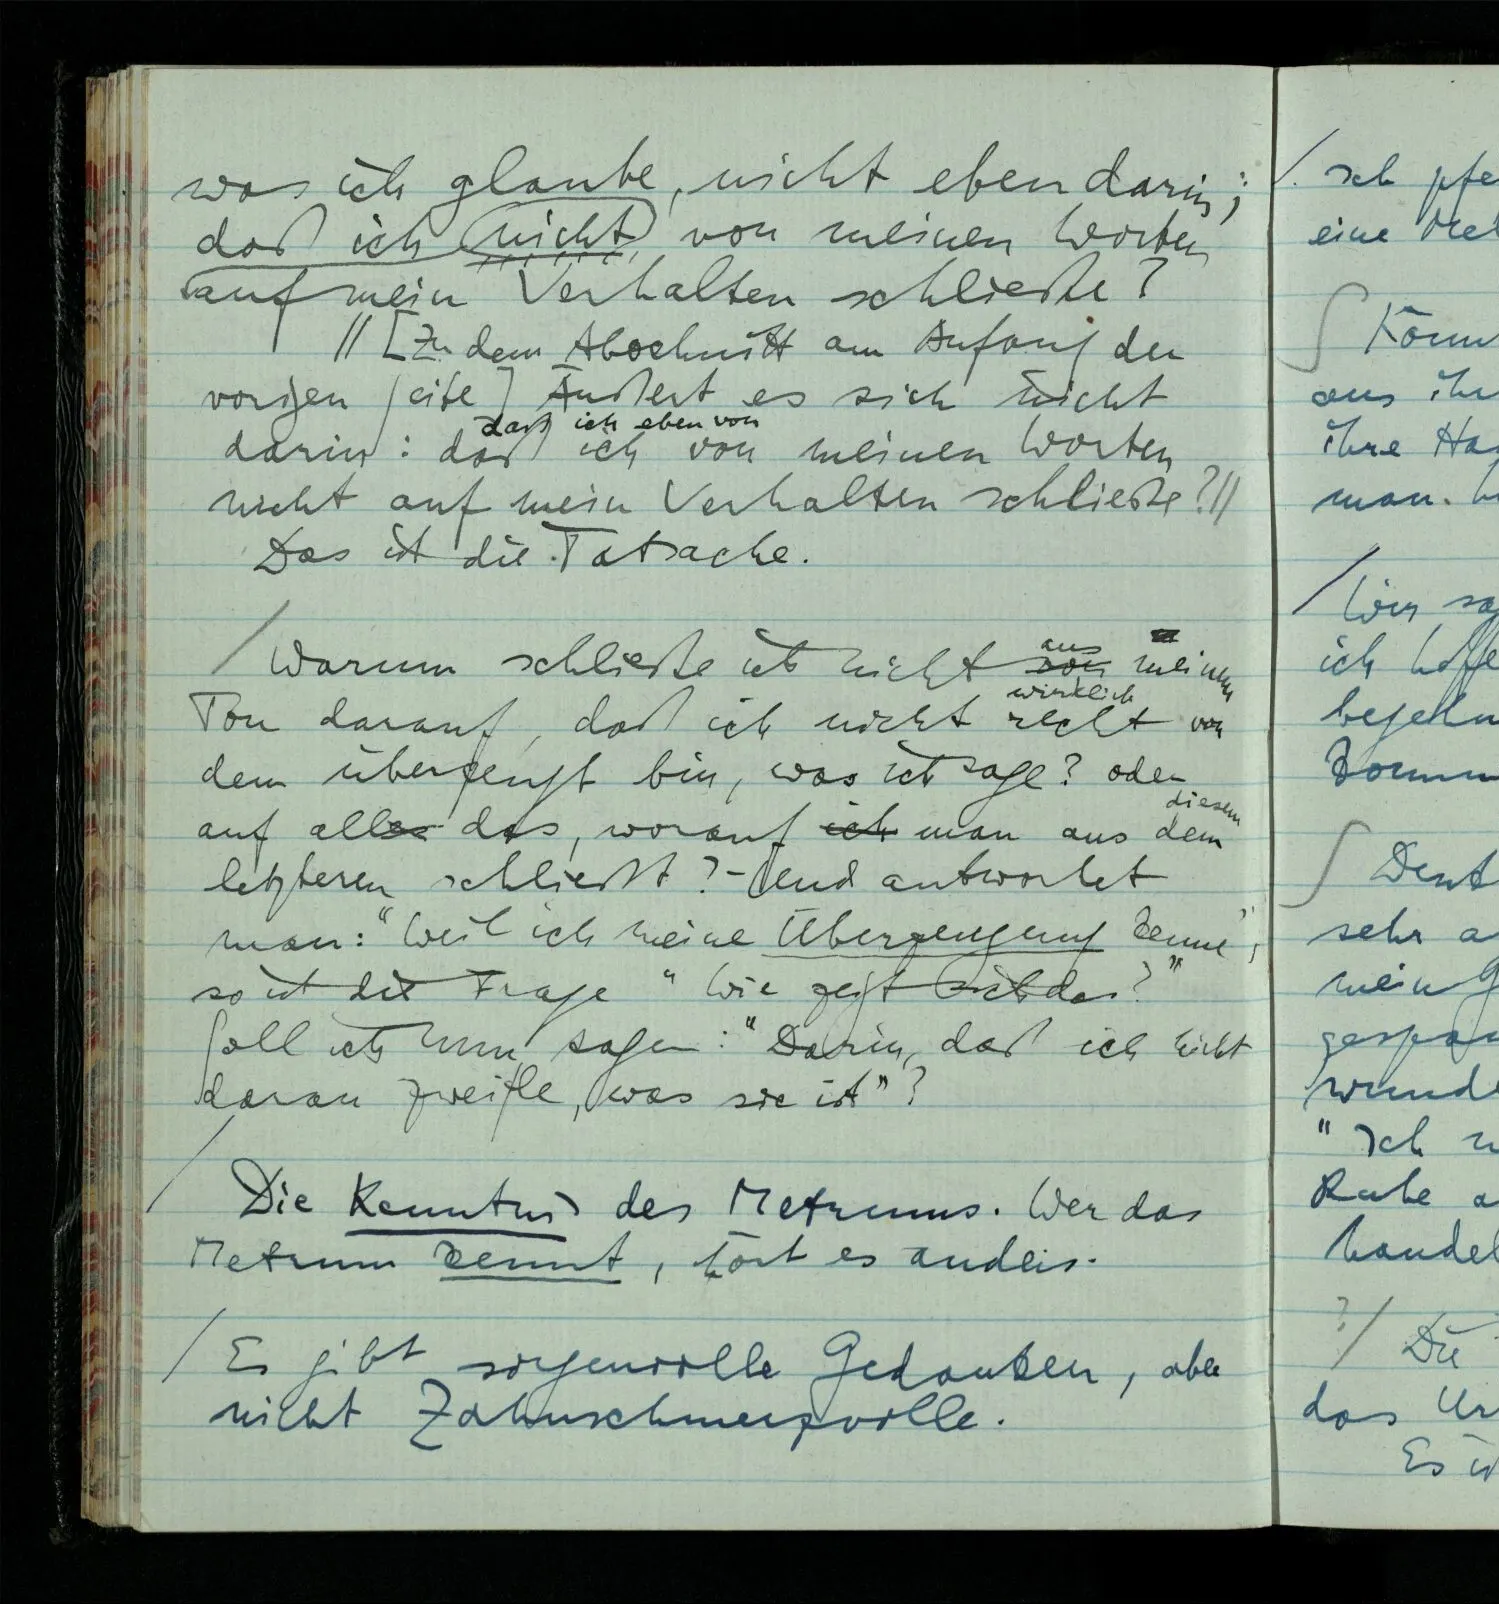 was ich glaube, nicht eben darin;
daß ich nicht von meinen Worten
auf mein Verhalten schließe?
// [Zu dem Abschnitt am Anfang der
vorigen Seite] Äußert es sich nicht
daß ich eben von
darin: daß ich von meinen Worten
nicht auf mein Verhalten schließe? //
Das ist die Tatsache.
/ Warum schließe ich nicht von aus meinem
Ton darauf, daß ich nicht recht wirklich von
dem überzeugt bin, was ich sage? oder
auf alles das, worauf ich man aus dem diesem
letzteren schließt? – Und antwortet
man: “Weil ich meine Überzeugung kenne”,
so ist die Frage “Wie zeigt sich das?”
Soll ich nun sagen: “Darin, daß ich nicht
daran zweifle, was sie ist”?
/ Die Kenntnis des Metrums. Wer das
Metrum kennt, hört es anders.
/ Es gibt sorgenvolle Gedanken, aber
nicht Zahnschmerzvolle.
/. Ich
eine
∫
aus
ihre
man.
/ Wir
ich
∫
sehr
mein
“Ich
Ruhe
?/ Die
das
Es